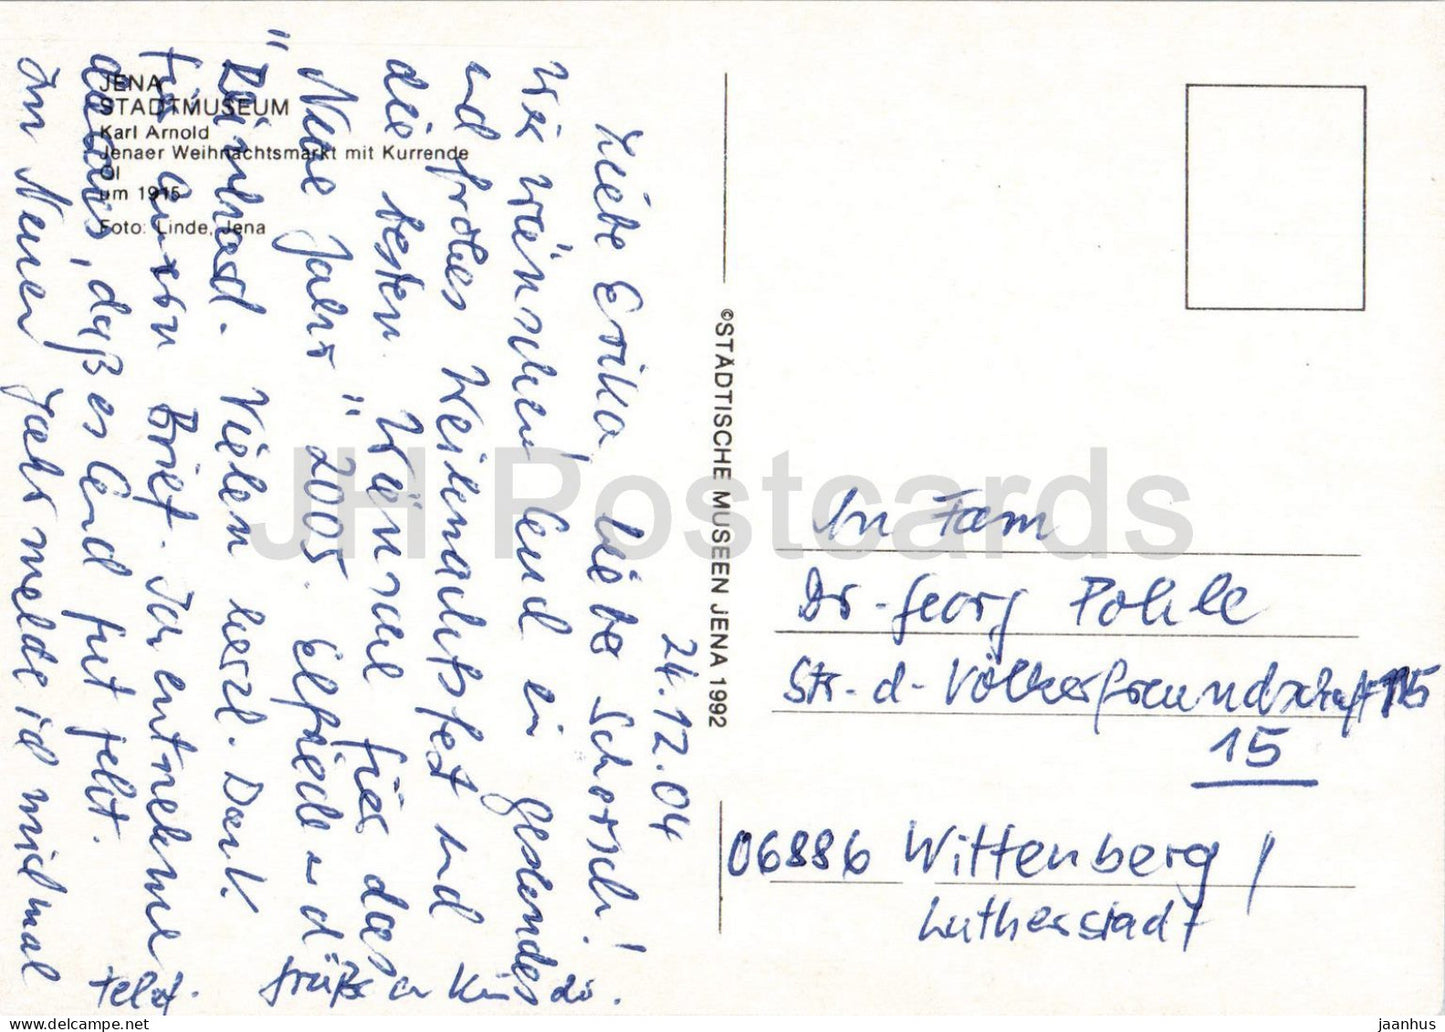 JENA
STADTMUSEUM
Karl Arnold
Jenaer Weihnachtsmarkt mit Kurrende
Öl
um 1915
Foto: Linde, Jena
24.12.04
Liebe Erika, lieber Schorsch!
Wir wünschen Euch ein gesundes
und frohes Weihnachtsfest und
die besten Wünsche für das
Neue Jahr "2005". Elfriede u. d
"Reinhard. Vielen herzl. Dank
für Euren Brief. Ich entnehme
daraus, daß es Euch gut geht.
Im Neuen Jahr melde ich mich mal
telef. Grüße an Kinder.
©STÄDTISCHE MUSEEN JENA 1992
An Fam
Dr. Georg Pohle
Str. d. Völkerfreundschaft 115
15
06886 Wittenberg /
Lutherstadt
JH Postcards
jaanhus - delcampe.net